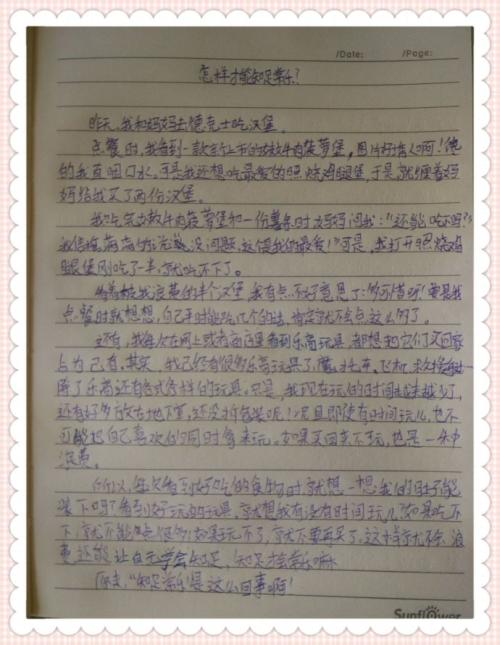 /Date: /Page:
怎样才能知足常乐?
昨天,我和妈妈去德克士吃汉堡。
点餐时,我看到一款新上市的牛肉菠萝堡,图片好诱人啊!馋
的我直咽口水,可是我还想吃最爱的照烧鸡腿堡,于是就缠着妈
妈给我买了两份汉堡。
我吃完牛肉菠萝堡和一份薯条时妈妈问我:“还能吃吗?”
我信心满满的说没问题,这是我的最爱!”可是,我打开照烧鸡
腿堡刚吃了一半,就吃不下了。
看着被我浪费的半个汉堡,我有点不好意思了:多可惜呀!要是我
点餐时就想想,自己平时能吃几个的话,肯定就不会点这么多了。
还有,我每次在网上或者商店里看到乐高玩具,都想把它们买回家
占为己有。其实,我已经有很多乐高玩具了,火车、飞机、
除了乐高还有各式各样的玩具。只是,我现在玩的时间越来越少了,
还有好多放在地下室,还没拆包装呢!况且即使有时间玩儿,也不
可能把自己喜欢的同时拿来玩。如果买回来不玩,也是一种
浪费。
所以,每次看到好吃的食物时,就想一想我的肚子能
装下吗?看到好玩的玩具,就想我有没有时间玩儿?如果吃不
下,就不能点很多;如果玩不了,就不要再买了。这样就不会浪
费,还能让自己学会知足,知足才能常乐嘛。
原来,“知足常乐”是这么回事啊!
Sunflower